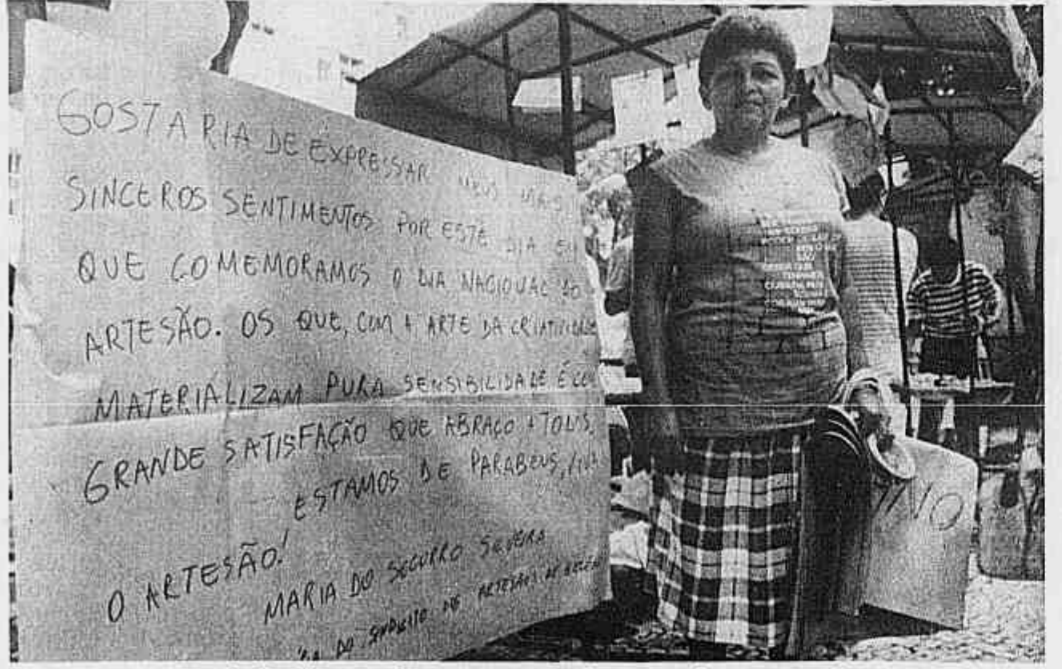 GOSTARIA DE EXPRESSAR MEUS MAIS
SINCEROS SENTIMENTOS POR ESTE DIA EM
QUE COMEMORAMOS O DIA NACIONAL DO
ARTESÃO. OS QUE, COM A ARTE DA CRIATIVIDADE
MATERIALIZAM PURA SENSIBILIDADE É COM
GRANDE SATISFAÇÃO QUE ABRAÇO A TODOS,
ESTAMOS DE PARABENS, VIVA
O ARTESÃO!
MARIA DO SOCORRO
DO SINDICATO DOS ARTESÃOS DE BELÉM